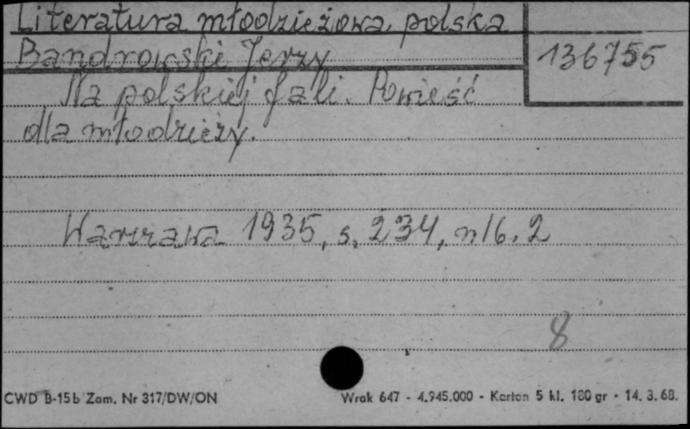 Literatura młodzieżowa polska
Bandrowski Jerzy
136755
Na polskiej fali. Powieść
dla młodzieży.
Warszawa 1935, s. 234, nlb. 2
8
CWD B-15b Zam. Nr 317/DW/ON
Wrak 647 - 4.945.000 - Karton 5 kl. 180 gr - 14. 3. 68.